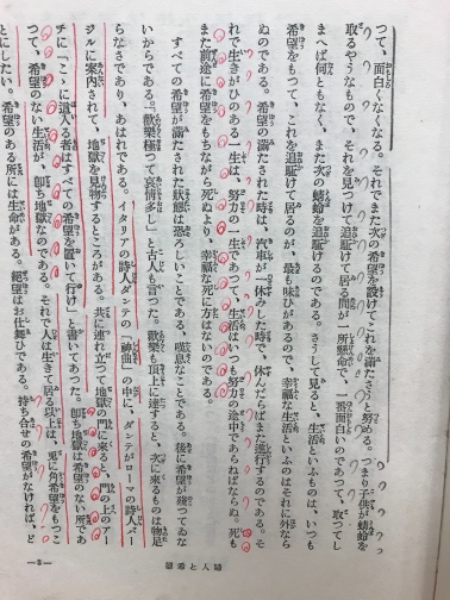 つて、面白くなくなる。それでまた次の希望を設けてこれを満たさうと努める。つまり子供が蜻蛉を
取るやうなもので、それを見つけて追駆けて居る間が一所懸命で、一番面白いのであつて、取つてし
まへば何ともなく、また次の蜻蛉を追駆けるのである。さうして見ると、生活といふものは、いつも
希望をもつて、これを追駆けて居るのが、最も味ひがあるので、幸福な生活といふのはそれに外なら
ぬのである。希望の満たされた時は、汽車が一休みした時で、休んだらばまた進行するのである。そ
れで生きがひのある一生は、努力の一生であつて、生活はいつも努力の途中であらねばならぬ。死も
また前途に希望をもちながら死ぬより、幸福な死に方はないのである。
すべての希望が満たされた状態は恐ろしいことである。嘆息なことである。後に希望が残つてゐな
いからである。「歓楽極つて哀情多し」と古人も言つた。歓楽も頂上に達すると、次に来るものは物足
らなさであり、あはれである。イタリアの詩人ダンテの「神曲」の中に、ダンテがローマの詩人バー
ジルに案内されて、地獄を見物するところがある。共に連れ立つて地獄の門に来ると、門の上のアー
チに「こゝに這入る者はすべての希望を置いて行け」と書いてあつた。即ち地獄は希望のない所であ
つて、希望のない生活が、即ち地獄なのである。それで人は生きて居る以上は、兎に角希望をもつこ
とにしたい。希望のある所には生命がある。絶望はお仕舞ひである。持ち合せの希望がなければ、ど
婦人と希望
—3—